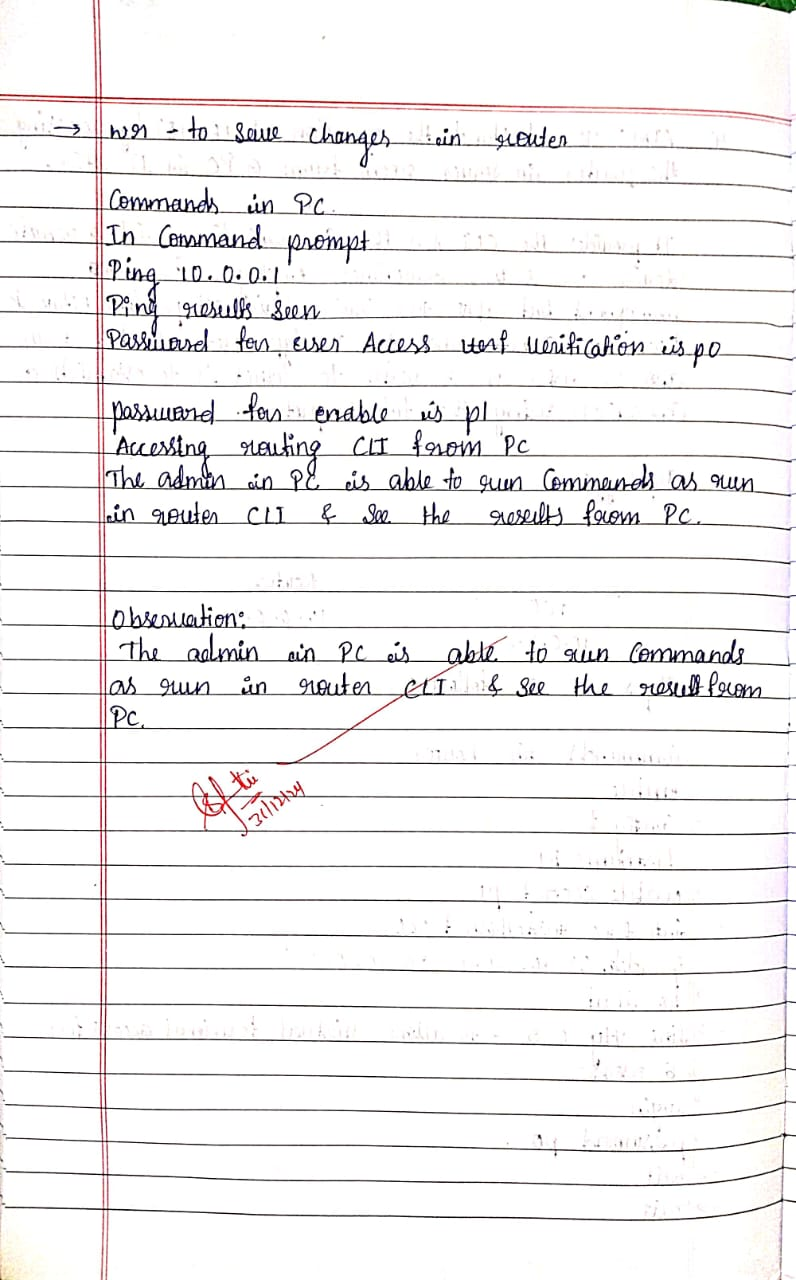 → wr - to save changes in router
Commands in PC
In Command prompt
Ping 10.0.0.1
Ping results seen
Password for user Access verification is p0
password for enable is p1
Accessing routing CLI from PC
The admin in PC is able to run Commands as run
in router CLI & See the results from PC.
Observation:
The admin in PC is able to run Commands
as run in router CLI & See the result from
PC.
31/12/24